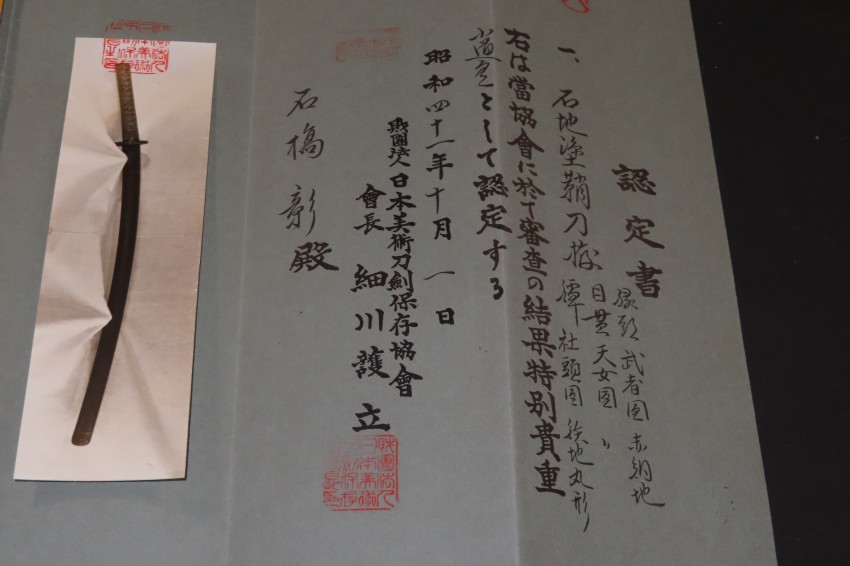 認定書
一、石地塗鞘刀拵
縁頭 武者図 赤銅地
目貫 天女図 〃
鐔 社頭図 鉄地丸形
右は當協會に於て審査の結果特別貴重
小道具として認定する
昭和四十一年十月一日
財團法人日本美術刀劍保存協會
會長 細川護立
石橋彰殿